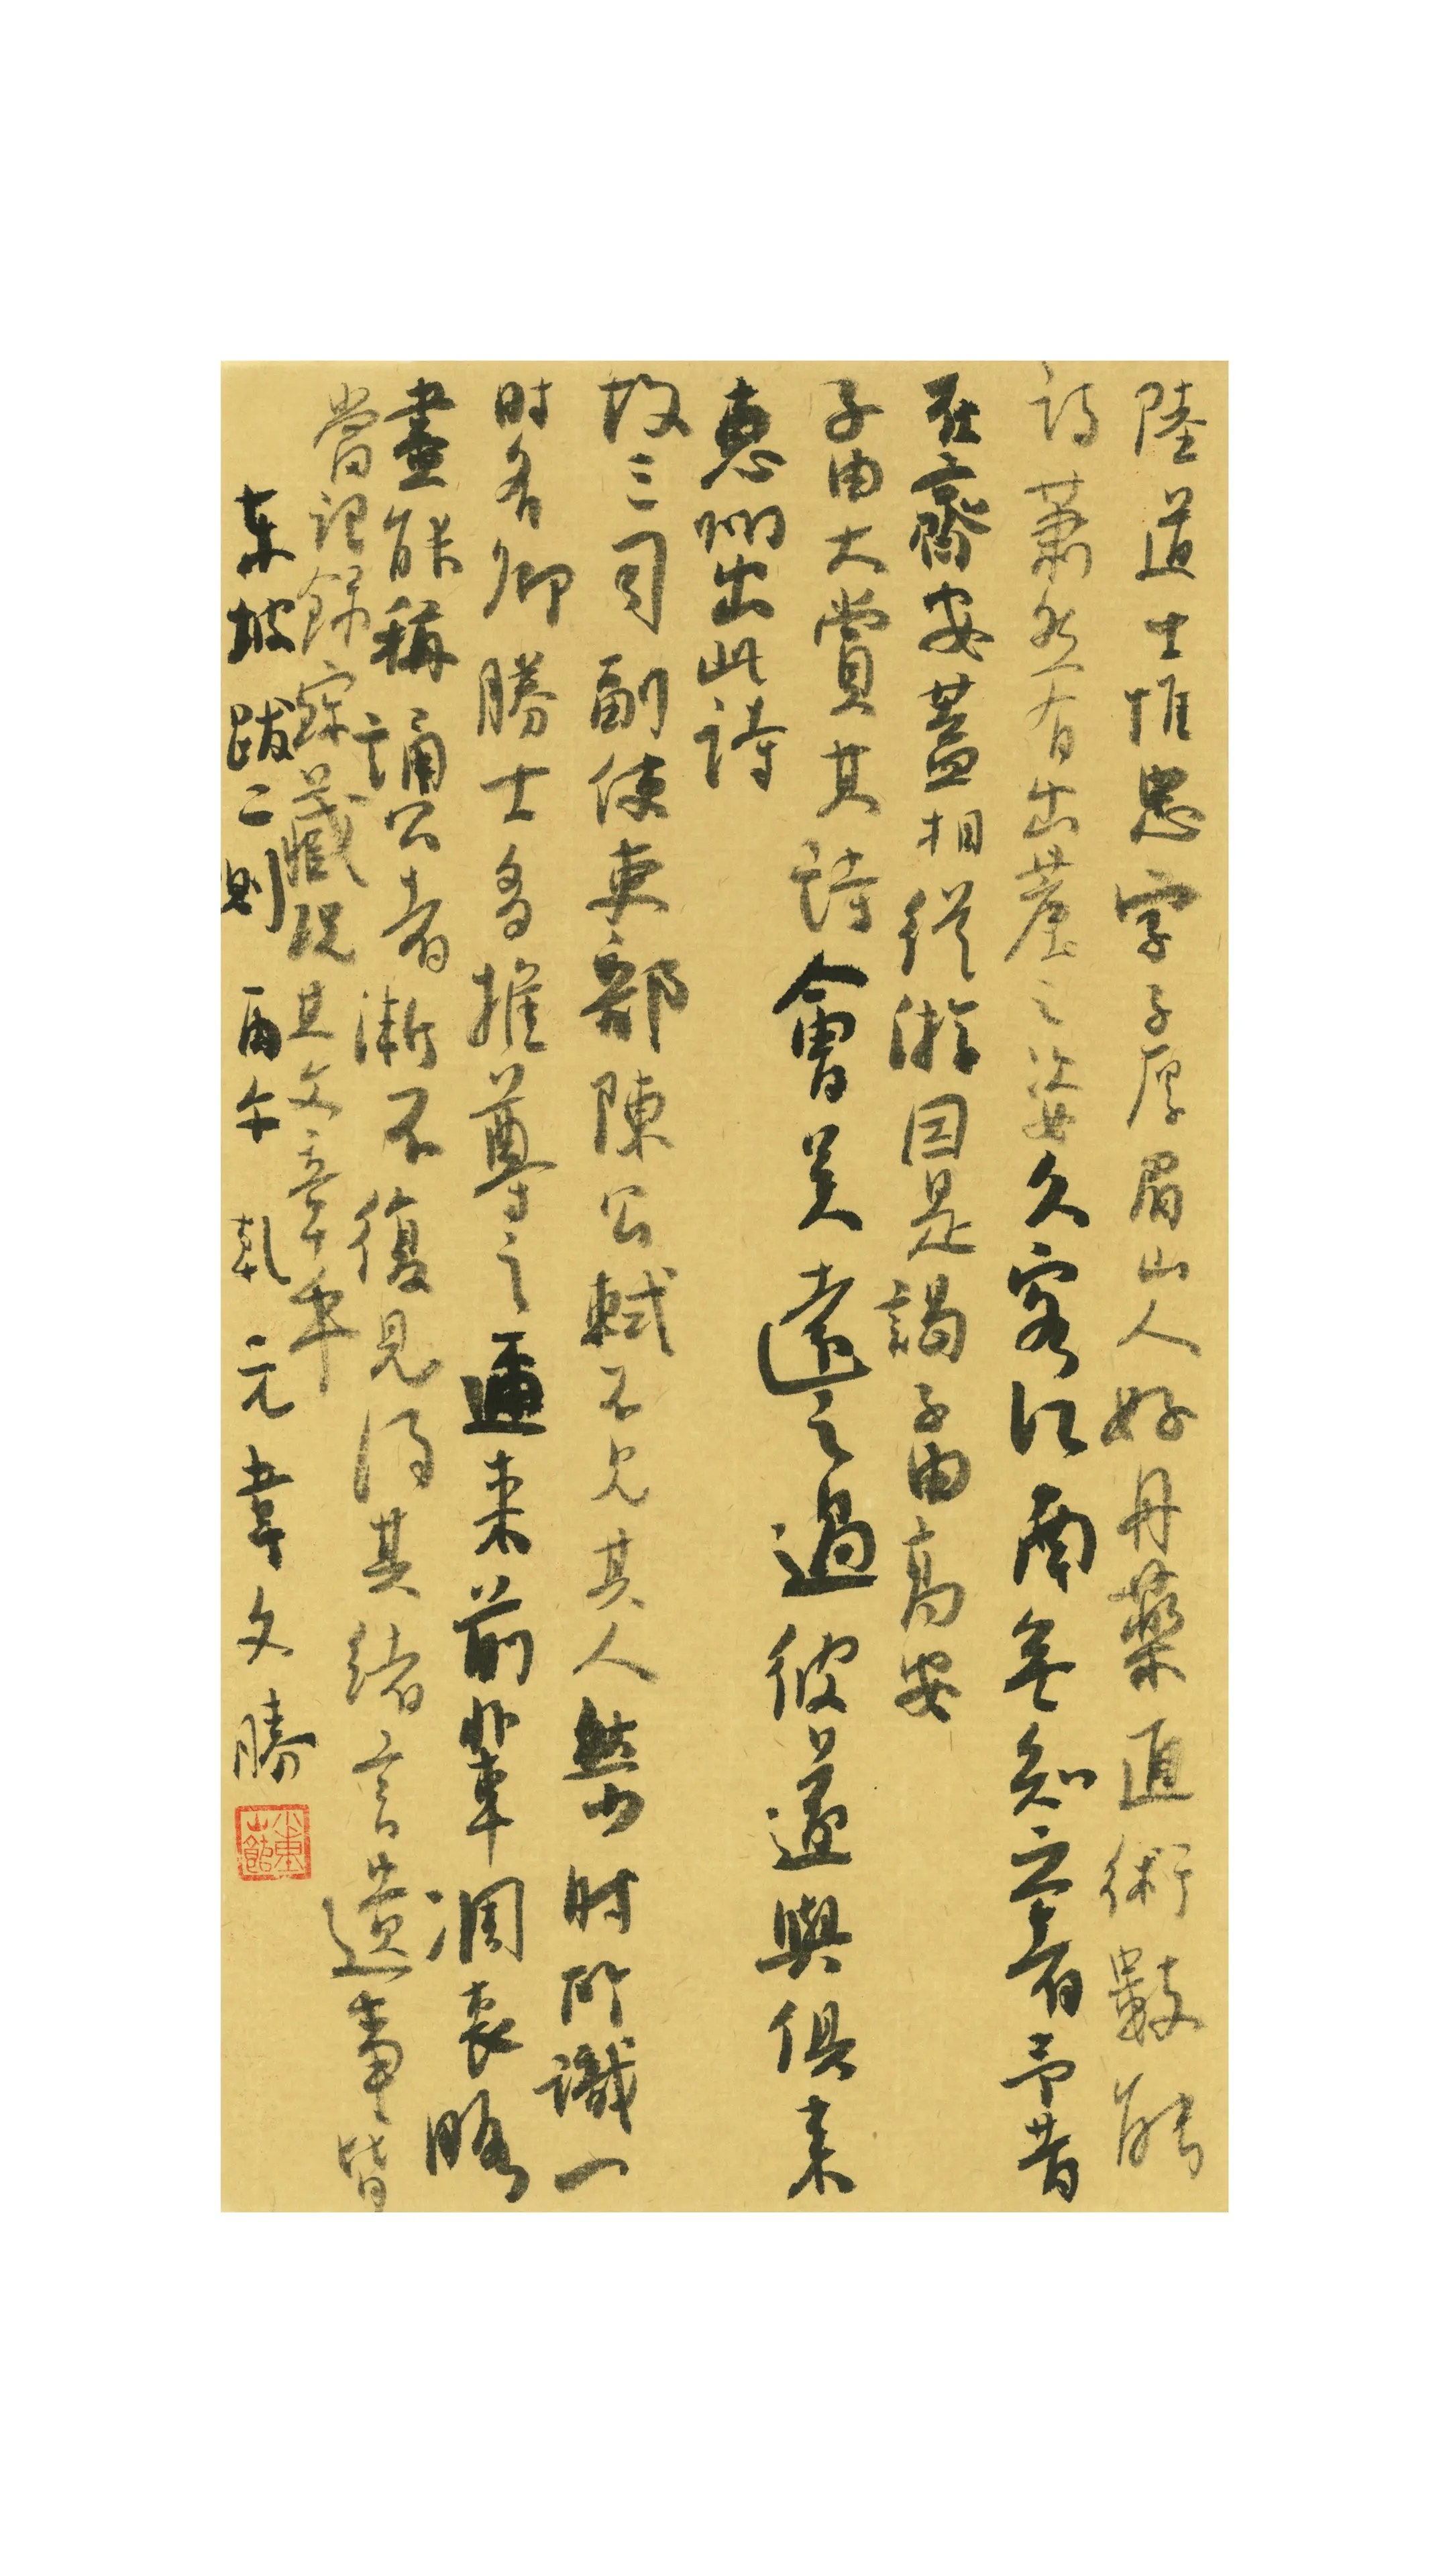 陸道士惟忠字子厚眉山人好丹藥通術數能
詩蕭然有出塵之姿久客江南無知之者予昔
在齋安蓋相從游因是謁子由高安
子由大賞其詩會吳遠之過彼遂與俱來
惠州出此詩
故三司副使吏部陳公軾不見其人然少时所識一
时名卿勝士多推尊之邇来前輩凋衰略
盡能稱誦公者漸不復見得其緒言遺事皆
當記錄寶藏况其文章乎
东坡跋二則 丙午 元 韋文勝